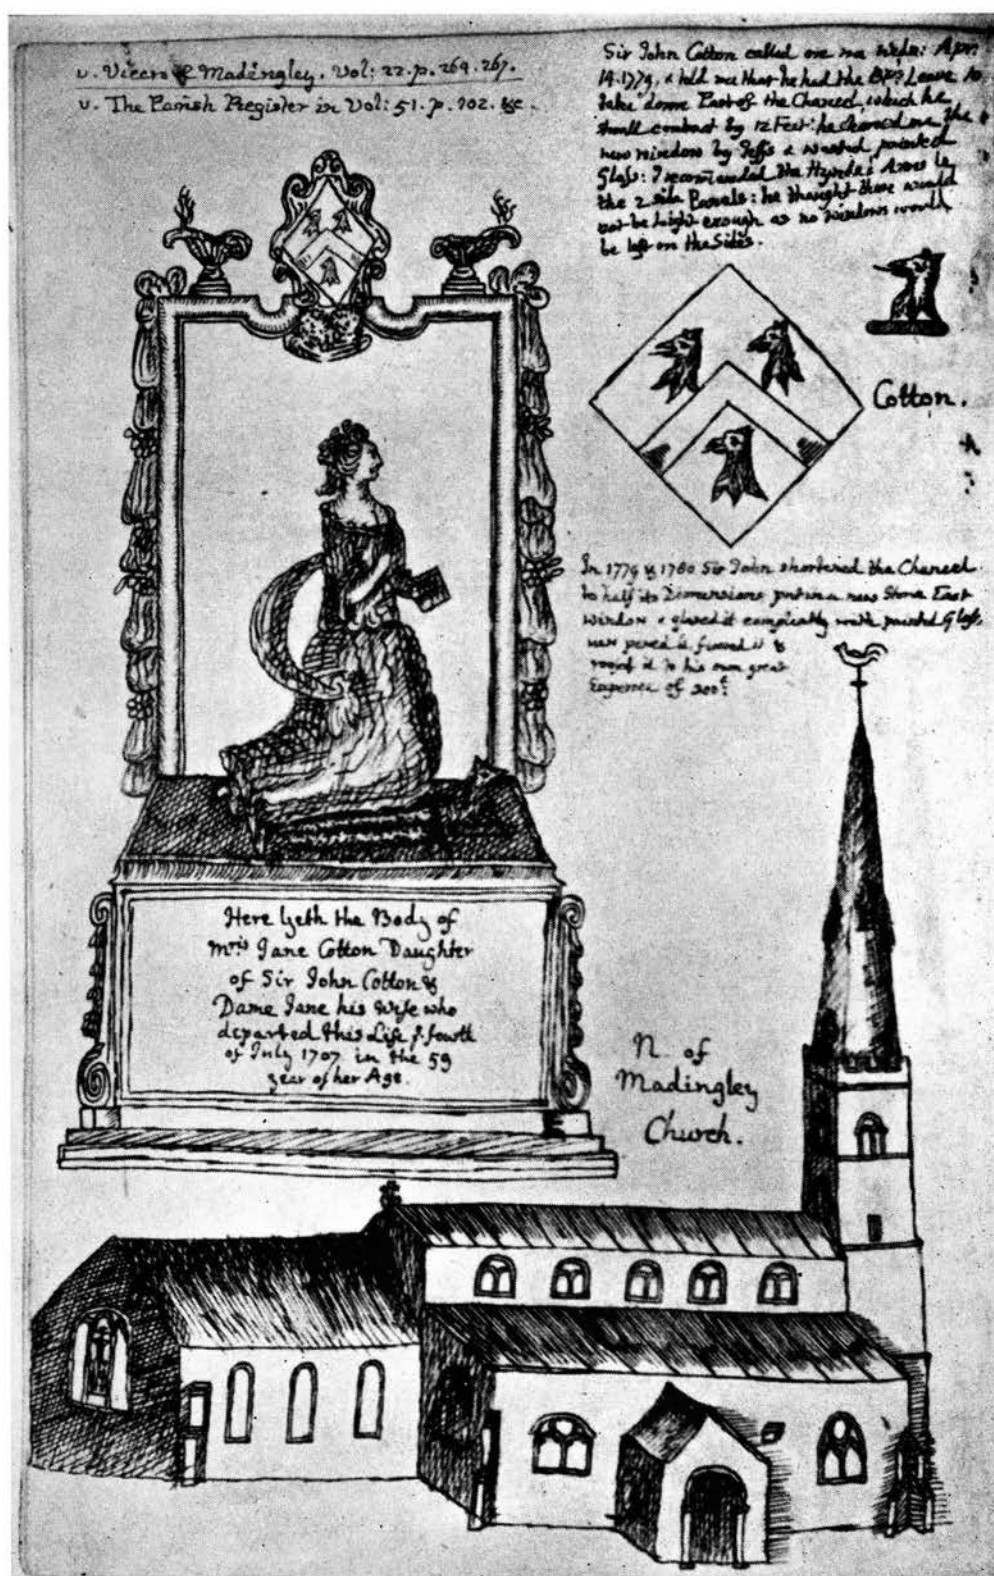 v. Vicers of Madingley. Vol: 22. p. 264. 267.
v. The Parish Register in Vol: 51. p. 102. &c.
Sir John Cotton called on me Apr:
14. 1779. & told me that he had the Bps Leave to
take downe Part of the Chancel, which he
shall contract by 12 Feet: he shewed me the
new window by Jeffs & wanted painted
Glass: I recomended the Hynde's Arms in
the 2 side Pannels: he thought there would
not be Light enough as no windows would
be left on the Sides.
Cotton.
In 1779 & 1780 Sir John shortened the Chancel
to half its Dimensions put in a new Stone East
window & glazed it compleatly with painted Glass,
new pewed it &
roofed it to his own great
Expence of 200£
Here lyeth the Body of
Mris Jane Cotton Daughter
of Sir John Cotton &
Dame Jane his Wife who
departed this Life ye fourth
of July 1707 in the 59
year of her Age.
N. of
Madingley
Church.